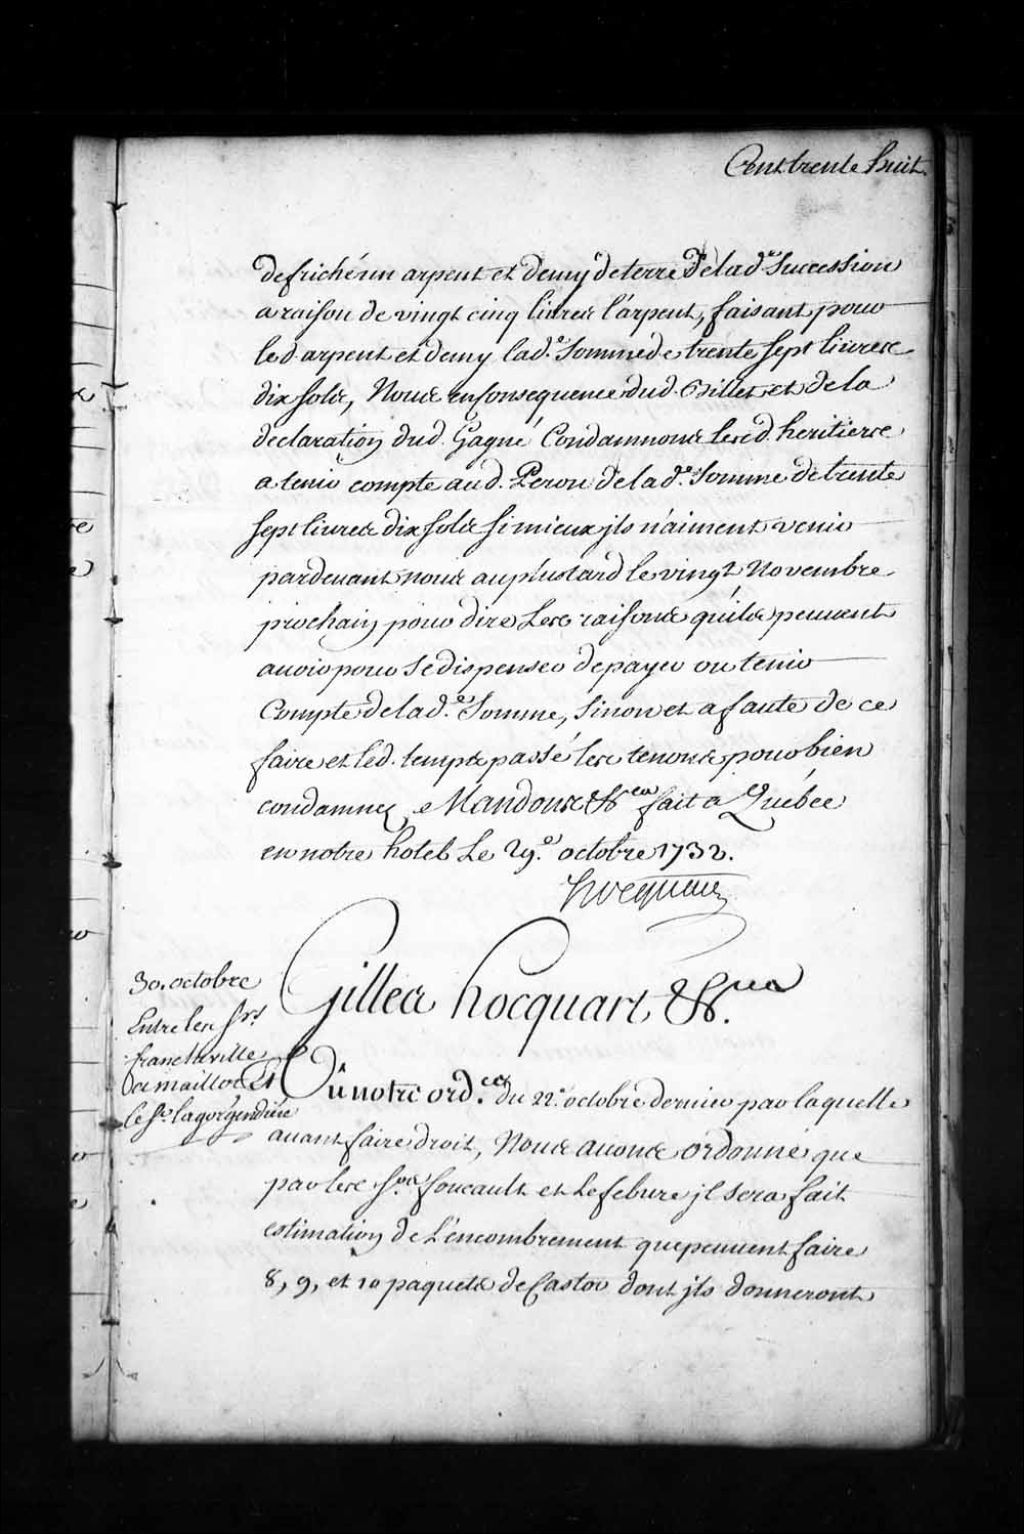 Cent trente huit
defriché un arpent et demy de terre de lad.e Succession
a raison de vingt cinq livres l'arpent, faisant pour
led. arpent et demy lad.e Somme de trente sept livres
dix sols, Nous en Consequence dud. Billet et de la
declaration dud. Gagné Condamnons lesd. heritiers
a tenir compte aud. Perou de lad.e Somme de trente
sept livres dix sols si mieux jls n'aiment venir
pardevant nous au plus tard le vingt Novembre
prochain pour dire Les raisons qu'ils peuvent
avoir pour Se dispenser de payer ou tenir
Compte de lad.e Somme, Sinon et a faute de ce
faire et led. temps passé les tenons pour bien
condamnez, Mandons &ca fait a Québec
en notre hotel Le 29.e octobre 1732.
hocquart
30. octobre
Entre les Srs
francheville
et
le Sr. lagorgendiere
Gilles hocquart &ca.
Vû notre ord.ce du 22.e octobre dernier par laquelle
avant faire droit, Nous avons ordonné que
par les Srs foucault et Lefebure jl sera fait
estimation de L'encombrement que peuvent faire
8, 9, et 10 paquets de Castor dont jls donneront